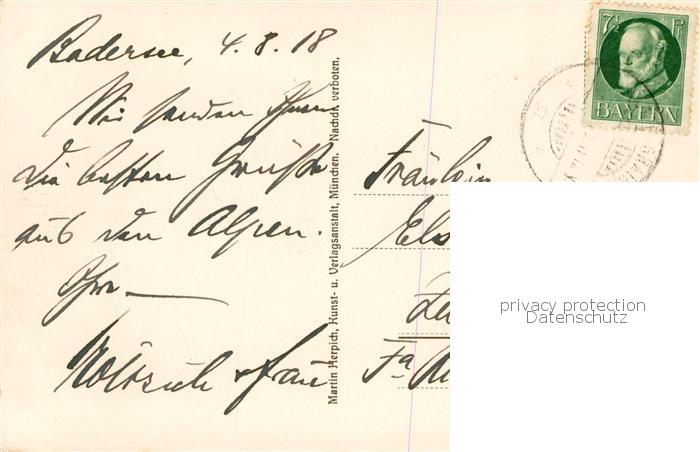 Badersee, 4. 8. 18
Wir senden Ihnen
die besten Grüße
aus den Alpen.
Ihre
u. Frau
Martin Herpich, Kunst- u. Verlagsanstalt, München. Nachdr. verboten.
Fräulein
Els
Fa
7½ Pf
BAYERN
privacy protection
Datenschutz